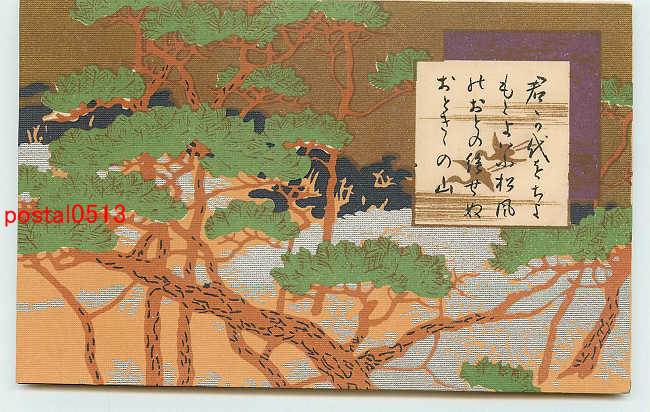 君か代をちよ
もとよふ松風
のおとの絶せぬ
おときゝの山
postal0513